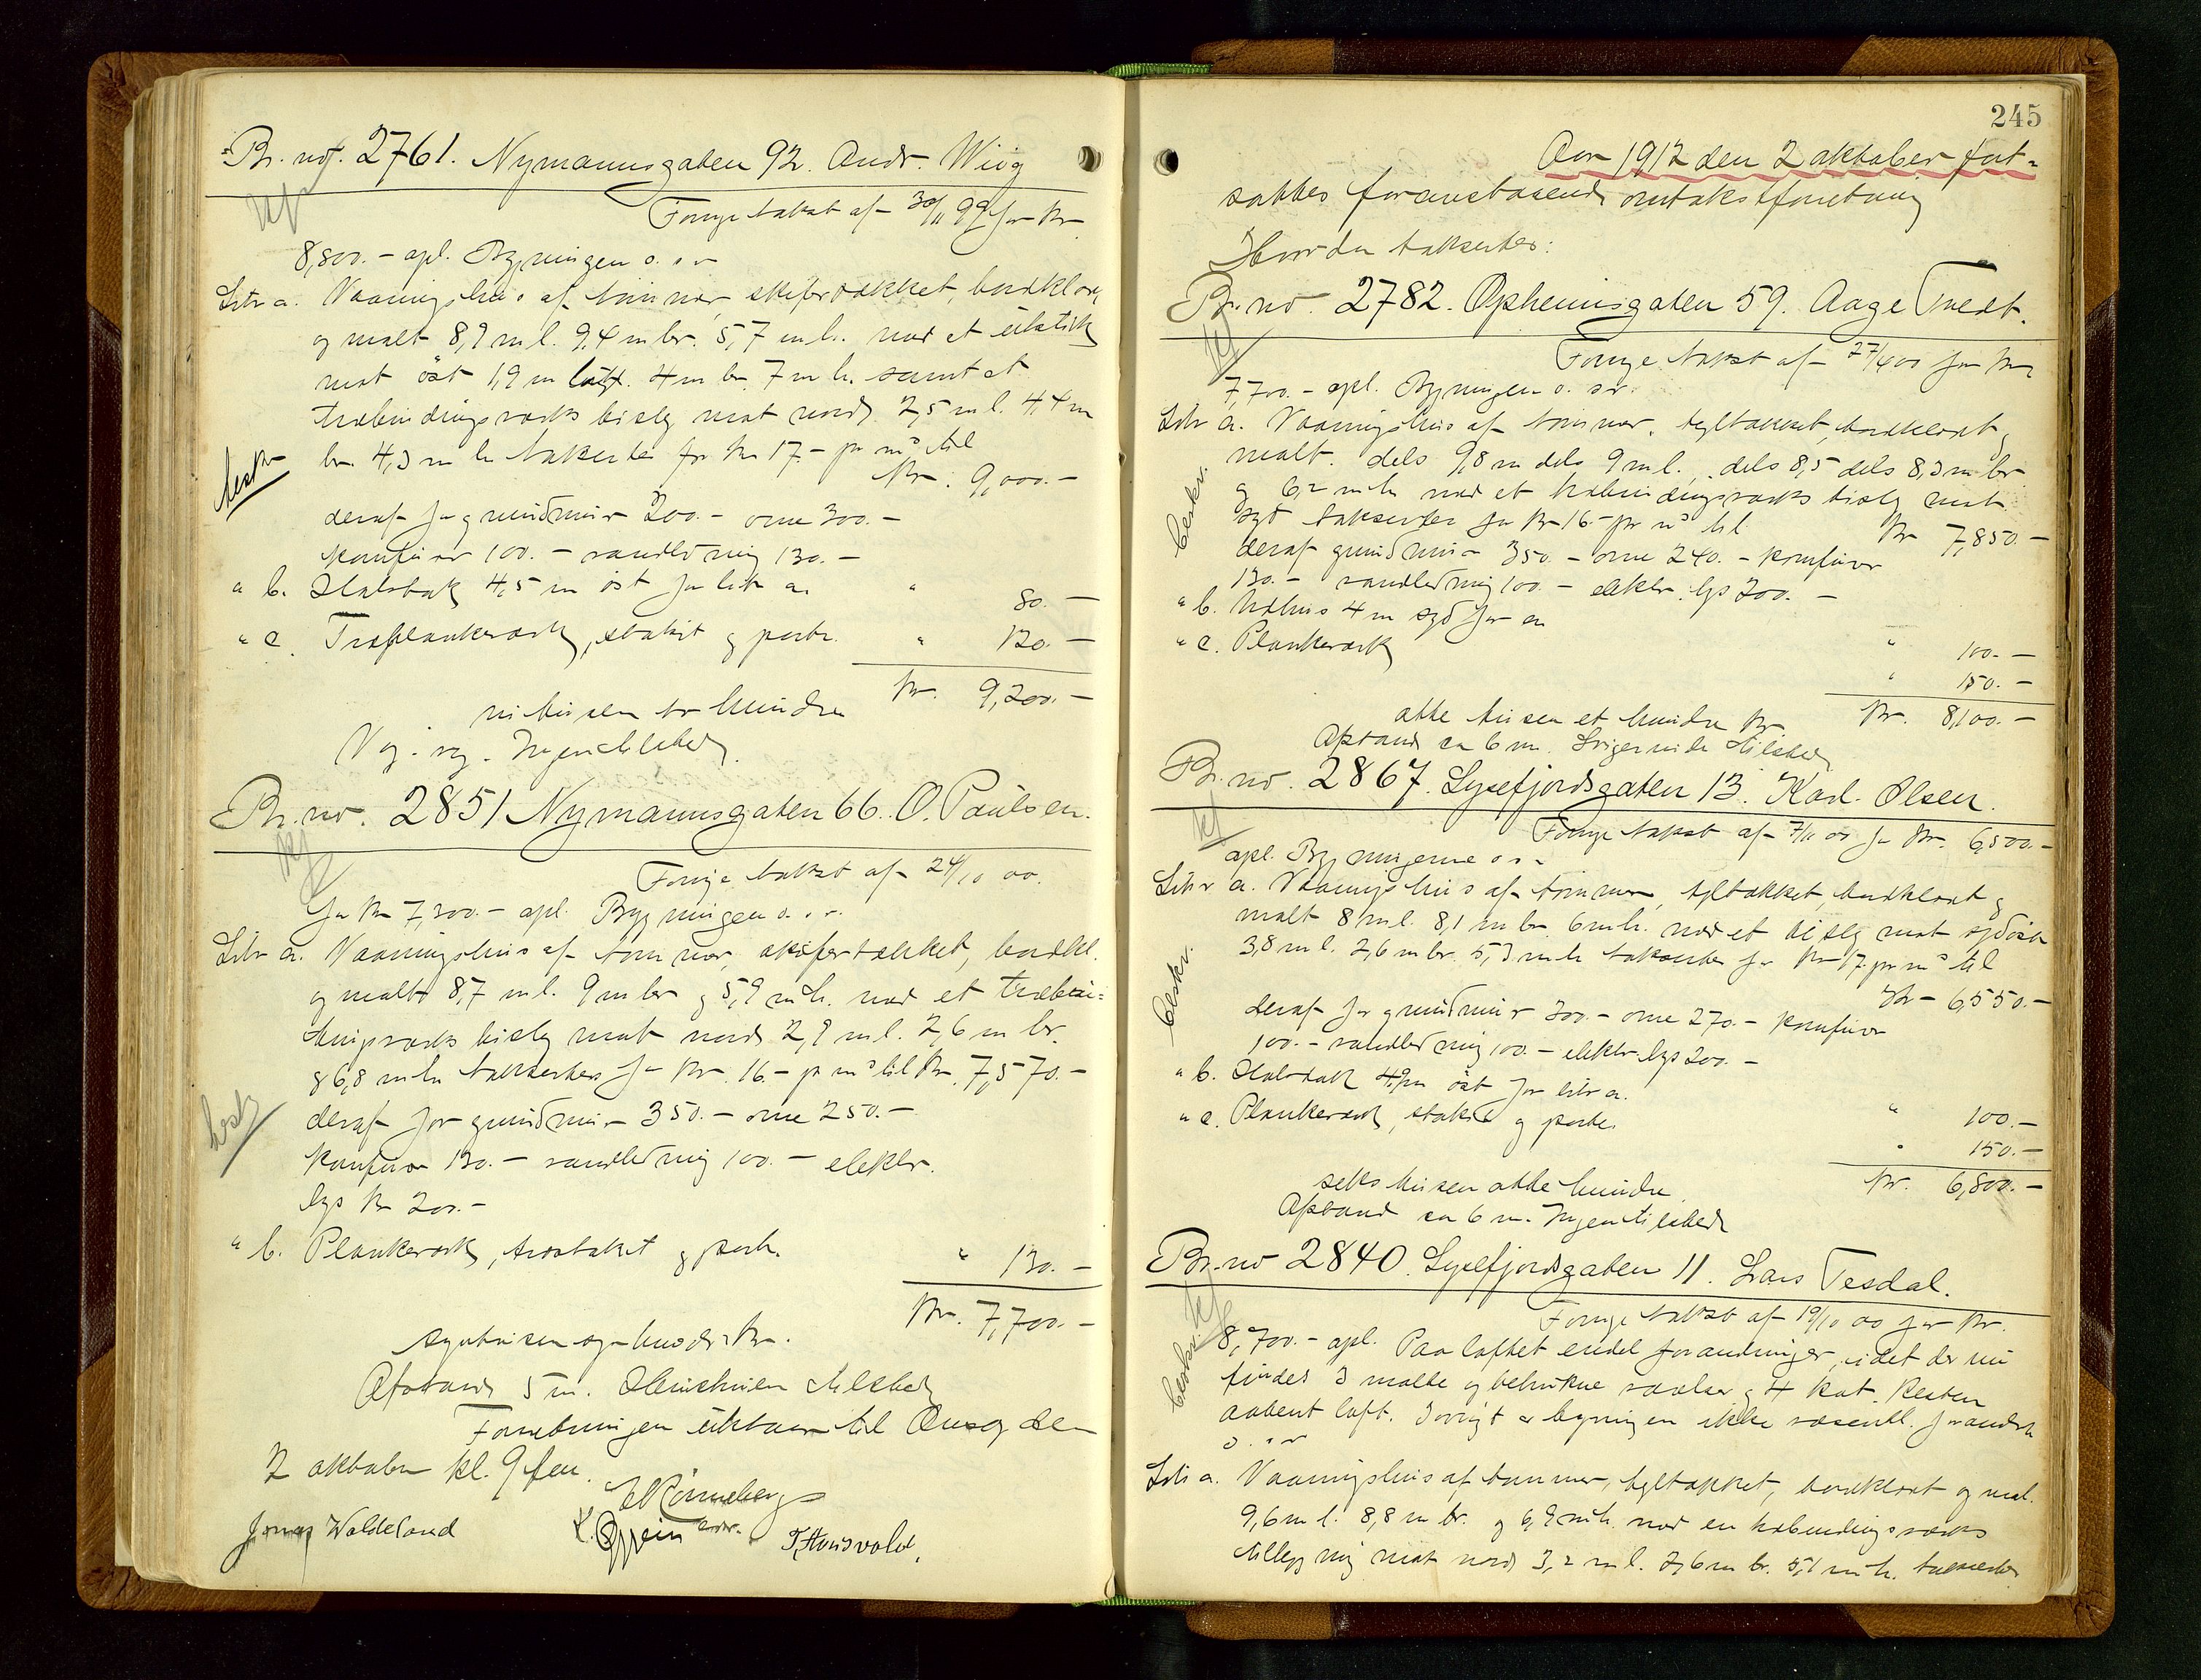 Br. no. 2761. Nymannsgaten 92. Andr. Wiig
Forrige takst af 30/11 99 for Kr
8,800.- opl. Bygningen o. s. v.
Litr a. Vaaningshus af tømmer, skifertækket, bordklædt
og malt 8,9 m l. 9,4 m br. 5,7 m h. med et utstik
mot øst 1,9 m langt. 4 m br. 7 m h. samt et
træbindingsværks bislag mot nord 2,5 m l. 4,4 m
br. 4,3 m h takseredes for Kr 17.- pr m³ til
Kr. 9,000.-
deraf for grundmur 200.- ovne 300.-
komfurer 100.- vandledning 130.-
" b. Halvtak 4,5 m øst for litr a. " 80.-
" c. Træplankeværk, stakit og porte. " 120.-
Kr. 9,200.-
ni tusen to hundre
Vej. reg. Ingen ildsted
Br. no. 2851 Nymannsgaten 66. O. Paulsen.
Forrige takst af 24/10 00.
for Kr 7,300.- opl. Bygningen o. s. v.
Litr a. Vaaningshus af tømmer, skifertækket, bordkl.
og malt 8,7 m l. 9 m br og 5,9 m h. med et træbin-
dingsværks bislag mot nord 2,9 m l. 2,6 m br.
og 6,8 m h takseredes for Kr. 16.- pr m³ til Kr. 7,570.-
deraf for grundmur 350.- ovne 250.-
komfurer 130.- vandledning 100.- elektr.
lys Kr 200.-
" b. Plankeværk, træstakit og port. " 130.-
Kr. 7,700.-
syvtusen syvhundre Kr.
Afstand 5 m. Ildsted
Forretningen utsattes til Onsdag den
2 oktober kl. 9 fm.
E Rønneberg
Jonas Waldeland K. Gjein T. Hausvold.
245
Aar 1912 den 2 oktober fort-
sattes foranstaaende omtakstforretning
Hvor da takseredes:
Br. no. 2782. Opheimsgaten 59. Aage Tvedt.
Forrige takst af 27/4 00 for Kr
7,700.- opl. Bygningen o. s. v.
Litr a. Vaaningshus af tømmer, tegltækket, bordklædt og
malt. dels 9,8 m dels 9 m l., dels 8,5 dels 8,3 m br
og 6,2 m h med et træbindingsværks bislag mot
syd takseredes for Kr 16.- pr m³ til Kr 7,850.-
deraf grundmur 350.- ovne 240.- komfurer
130.- vandledning 100.- elektr. lys 200.-
" b. Uthus 4 m syd for a " 100.-
" c. Plankeværk " 150.-
Kr. 8,100.-
otte tusen et hundre Kr
Afstand ca 6 m. Ildsted
Br. no. 2867. Lysefjordsgaten 13. Karl. Olsen.
Forrige takst af 7/11 00 for Kr. 6,500.-
opl. Bygningerne o. s. v
Litr a. Vaaningshus af tømmer, tegltækket, bordklædt og
malt 8 m l. 8,1 m br. 6 m h. med et bislag mot sydøst
3,8 m l. 2,6 m br. 5,3 m h takseredes for Kr 17 pr m³ til
Kr 6,550.-
deraf for grundmur 300.- ovne 270.- komfurer
100.- vandledning 100.- elektr. lys 200.-
" b. Halvtak 4,9 m øst for litr a. " 100.-
" c. Plankeværk, stakit og porte. " 150.-
Kr. 6,800.-
seks tusen otte hundre
Afstand ca 6 m. Ingen ildsted
Br. no 2840. Lysefjordsgaten 11. Lars Tesdal.
Forrige takst af 19/10 00 for Kr.
8,700.- opl. Paa loftet endel forandringer, idet der nu
findes 3 malte og betrukne værelser og 4 kot. Resten
aabent loft. Iøvrigt er bygningen ikke væsentl. forandret
o. s. v
Litr a. Vaaningshus af tømmer, tegltækket, bordklædt og mal.
9,6 m l. 8,8 m br. og 6,9 m h. med en træbindingsværks
tilbygning mot nord 3,2 m l. 2,6 m br. 5,1 m h. takseredes